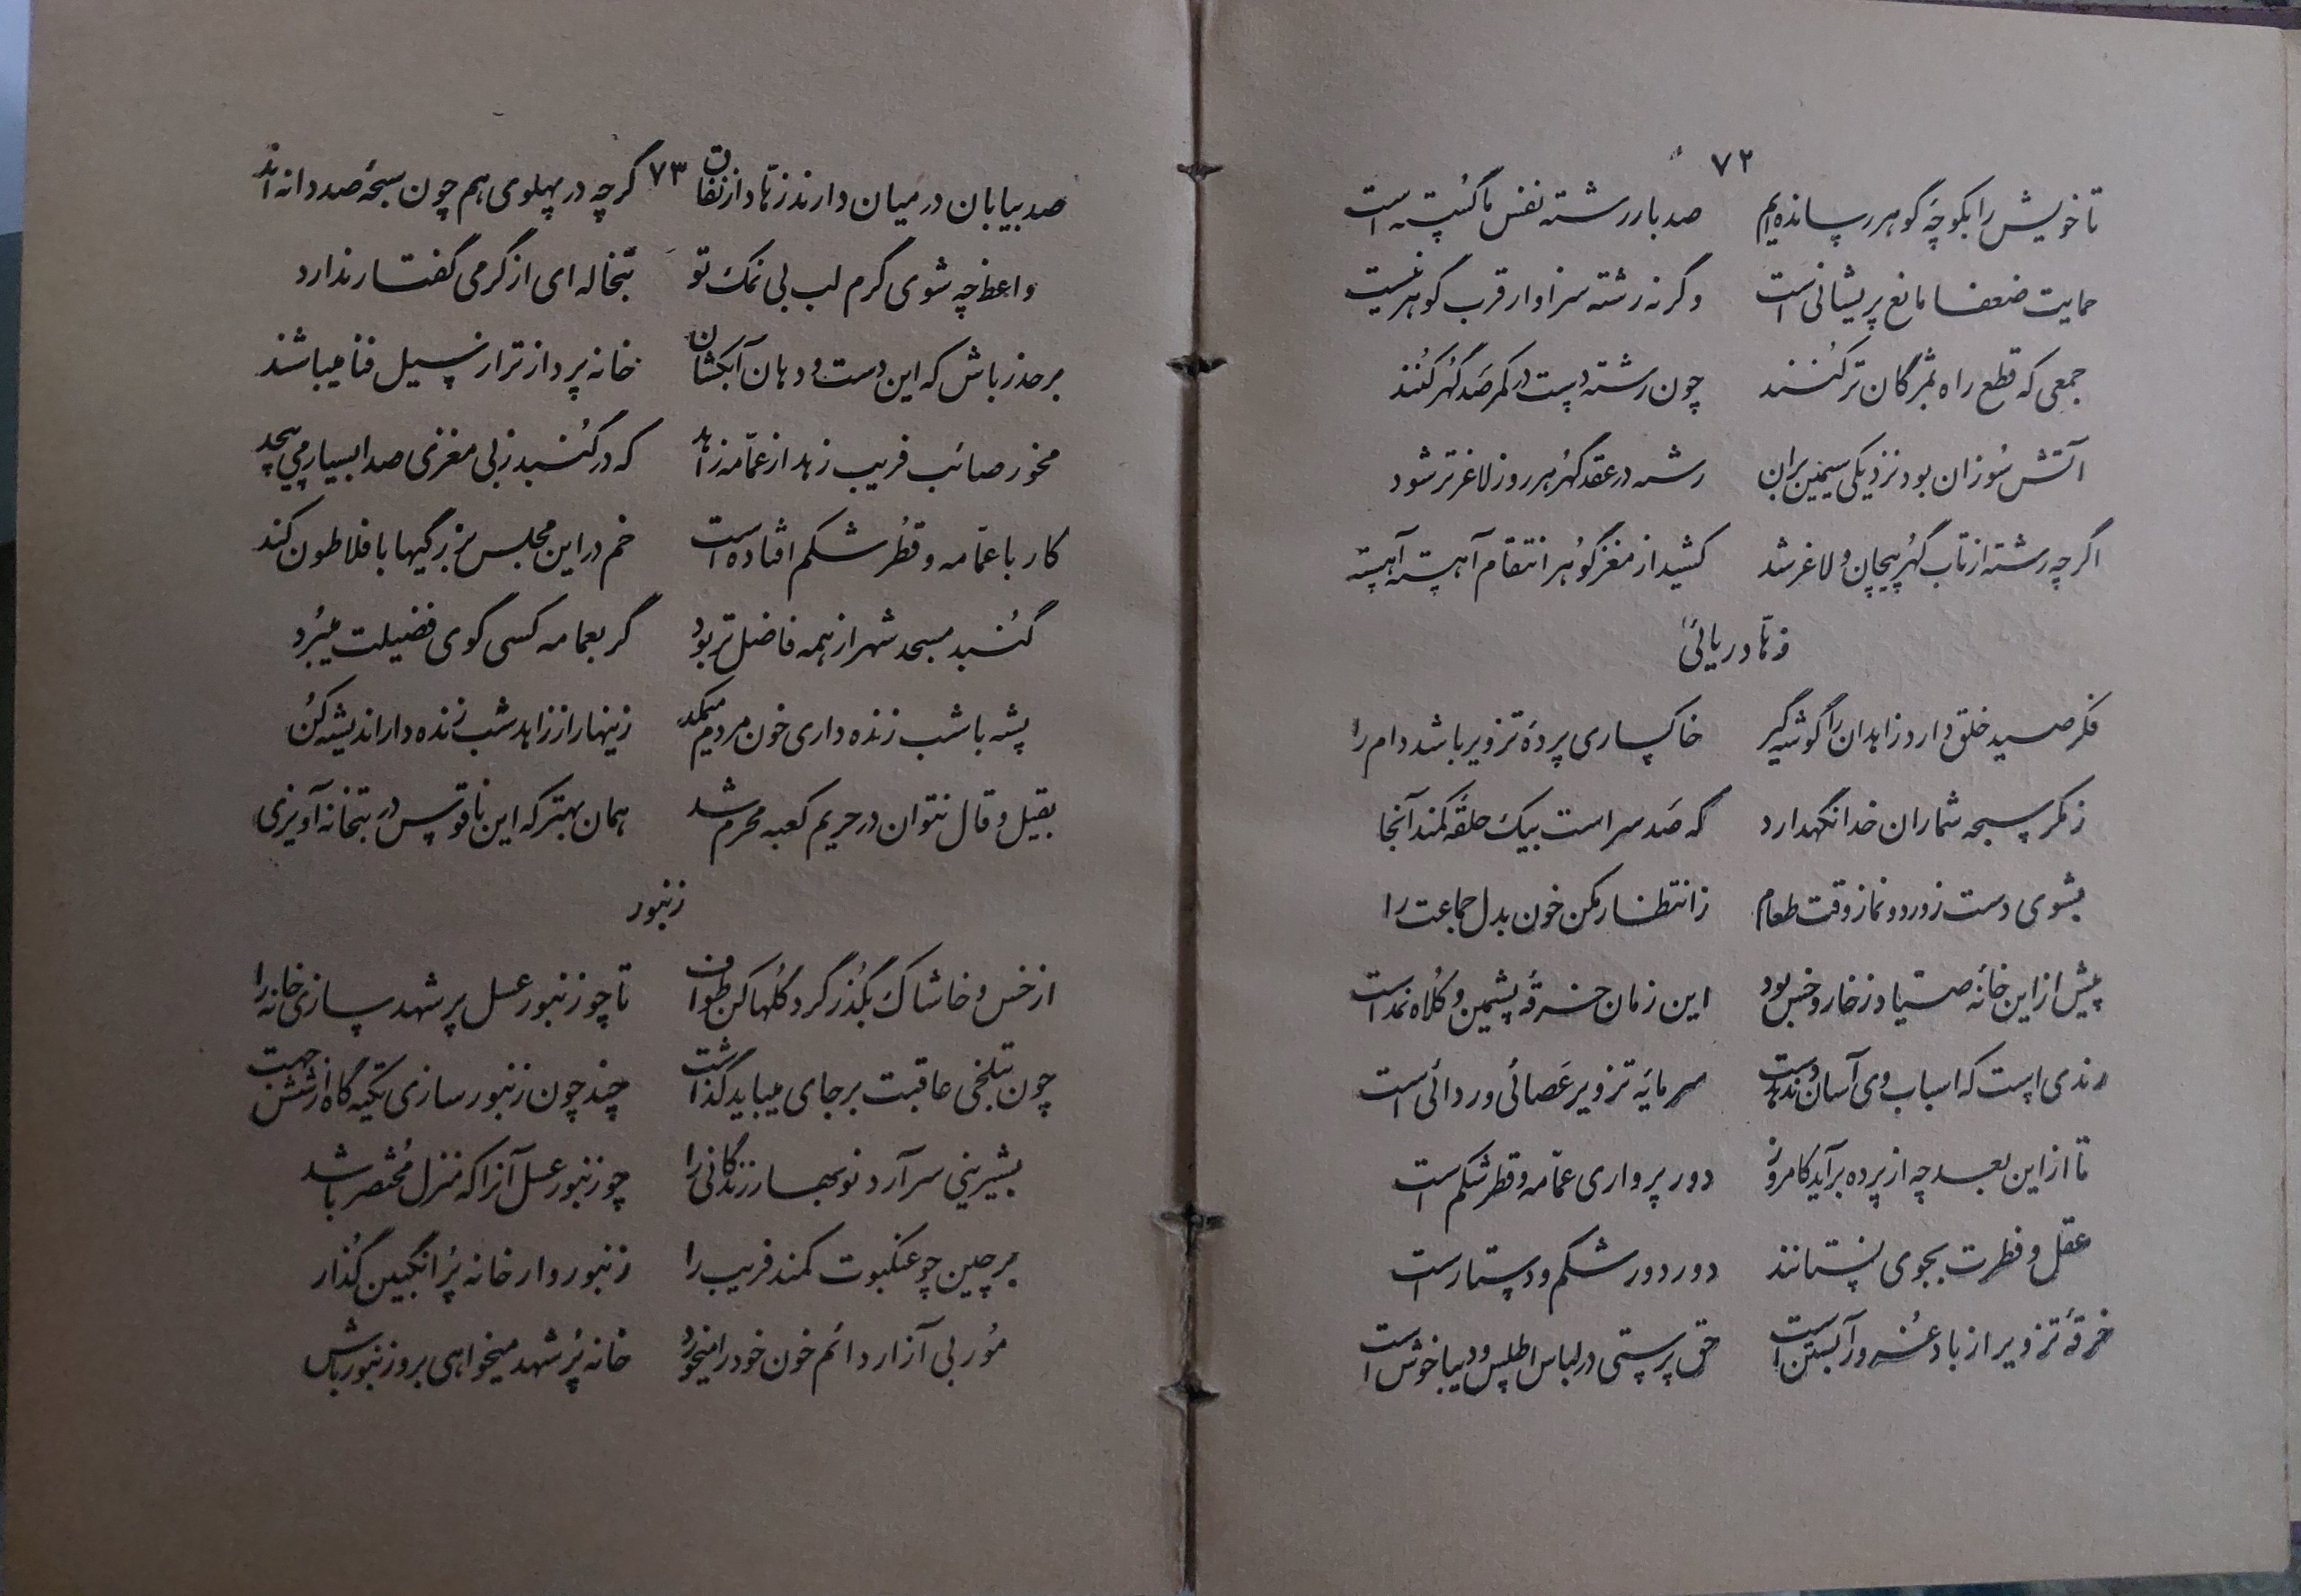 ۷۲
تا خویش را بکوچهٔ گوهر رسانده‌ایم صد بار رشته نفس ما گسسته است
حمایت ضعفا مانع پریشانی است وگرنه رشته سزاوار قرب گوهر نیست
جمعی که قطع راه بمژگان تر کنند چون رشته دست در کمر صد گهر کنند
آتش سوزان بود نزدیکی سیمین بران رشته در عقد گهر هر روز لاغرتر شود
اگرچه رشته از تاب گهر پیچان و لاغر شد کشید از مغز گوهر انتقام آهسته آهسته
زهاد ریائی
فکر صید خلق دارد زاهدان را گوشه‌گیر خاکساری پردهٔ تزویر باشد دام را
ز مکر سبحه شماران خدا نگهدارد که صد سر است بیک حلقه کمند آنجا
بشوی دست ز ورد و نماز وقت طعام ز انتظار مکن خون بدل جماعت را
پیش از این خانهٔ صیاد ز خار و خس بود این زمان خرقهٔ پشمین و کلاه نمد است
رندی است که اسباب وی آسان ندهد دست سرمایهٔ تزویر عصائی و ردائی است
تا از این بعد چه از پرده برآید کامروز دور پرواری عمامه و قطر شکم است
عقل و فطرت بجوی نستانند دور دور شکم و دستار است
خرقهٔ تزویر از باد غرور آبستن است حق پرستی در لباس اطلس و دیبا خوش است
۷۳
صد بیابان در میان دارند زهاد از نفاق گرچه در پهلوی هم چون سبحهٔ صد دانه‌اند
واعظ چه شوی گرم لب بی نمک تو تبخاله‌ای از گرمی گفتار ندارد
برحذر باش که این دست و دهان آبکشان خانه پردازتر از سیل فنا میباشند
مخور صائب فریب زهد از عمامه زاهد که در گنبد ز بی مغزی صدا بسیار می‌پیچد
کار با عمامه و قطر شکم افتاده است خم در این مجلس بزرگیها با فلاطون کند
گنبد مسجد شهر از همه فاضل‌تر بود گر بعمامه کسی گوی فضیلت میبرد
پشه با شب زنده داری خون مردم میمکد زینهار از زاهد شب زنده دار اندیشه کن
بقیل و قال نتوان در حریم کعبه محرم شد همان بهتر که این ناقوس در بتخانه آویزی
زنبور
از خس و خاشاک بگذر گرد گلها کن طواف تا چو زنبور عسل پر شهد سازی خانه را
چون بتلخی عاقبت برجای میباید گذاشت چند چون زنبور سازی تکیه‌گاه از شش جهت
بشیرینی سرآرد نوبهار زندگانی را چو زنبور عسل آنرا که منزل مختصر باشد
برچین چو عنکبوت کمند فریب را زنبوروار خانه پر انگبین گذار
مور بی آزار دائم خون خود را میخورد خانه پر شهد میخواهی برو زنبور باش